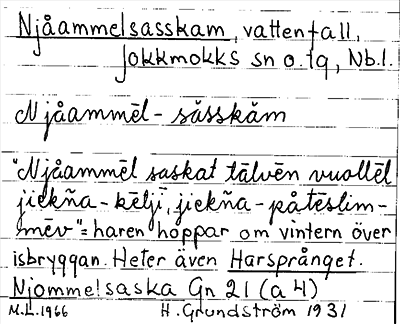 Njåammelsasskam, vattenfall,
Jokkmokks sn o. tg, Nb.l.
Njåammēl-săsskăm
"Njåammēl saskat tālvēn vuollēl
jiekŋa-kēljī, jiekŋa-påtēslim-
mēv" = haren hoppar om vintern över
isbryggan. Heter även Harsprånget.
Njommelsaska Gn 21 (a 4)
M.L. 1966 H. Grundström 1931